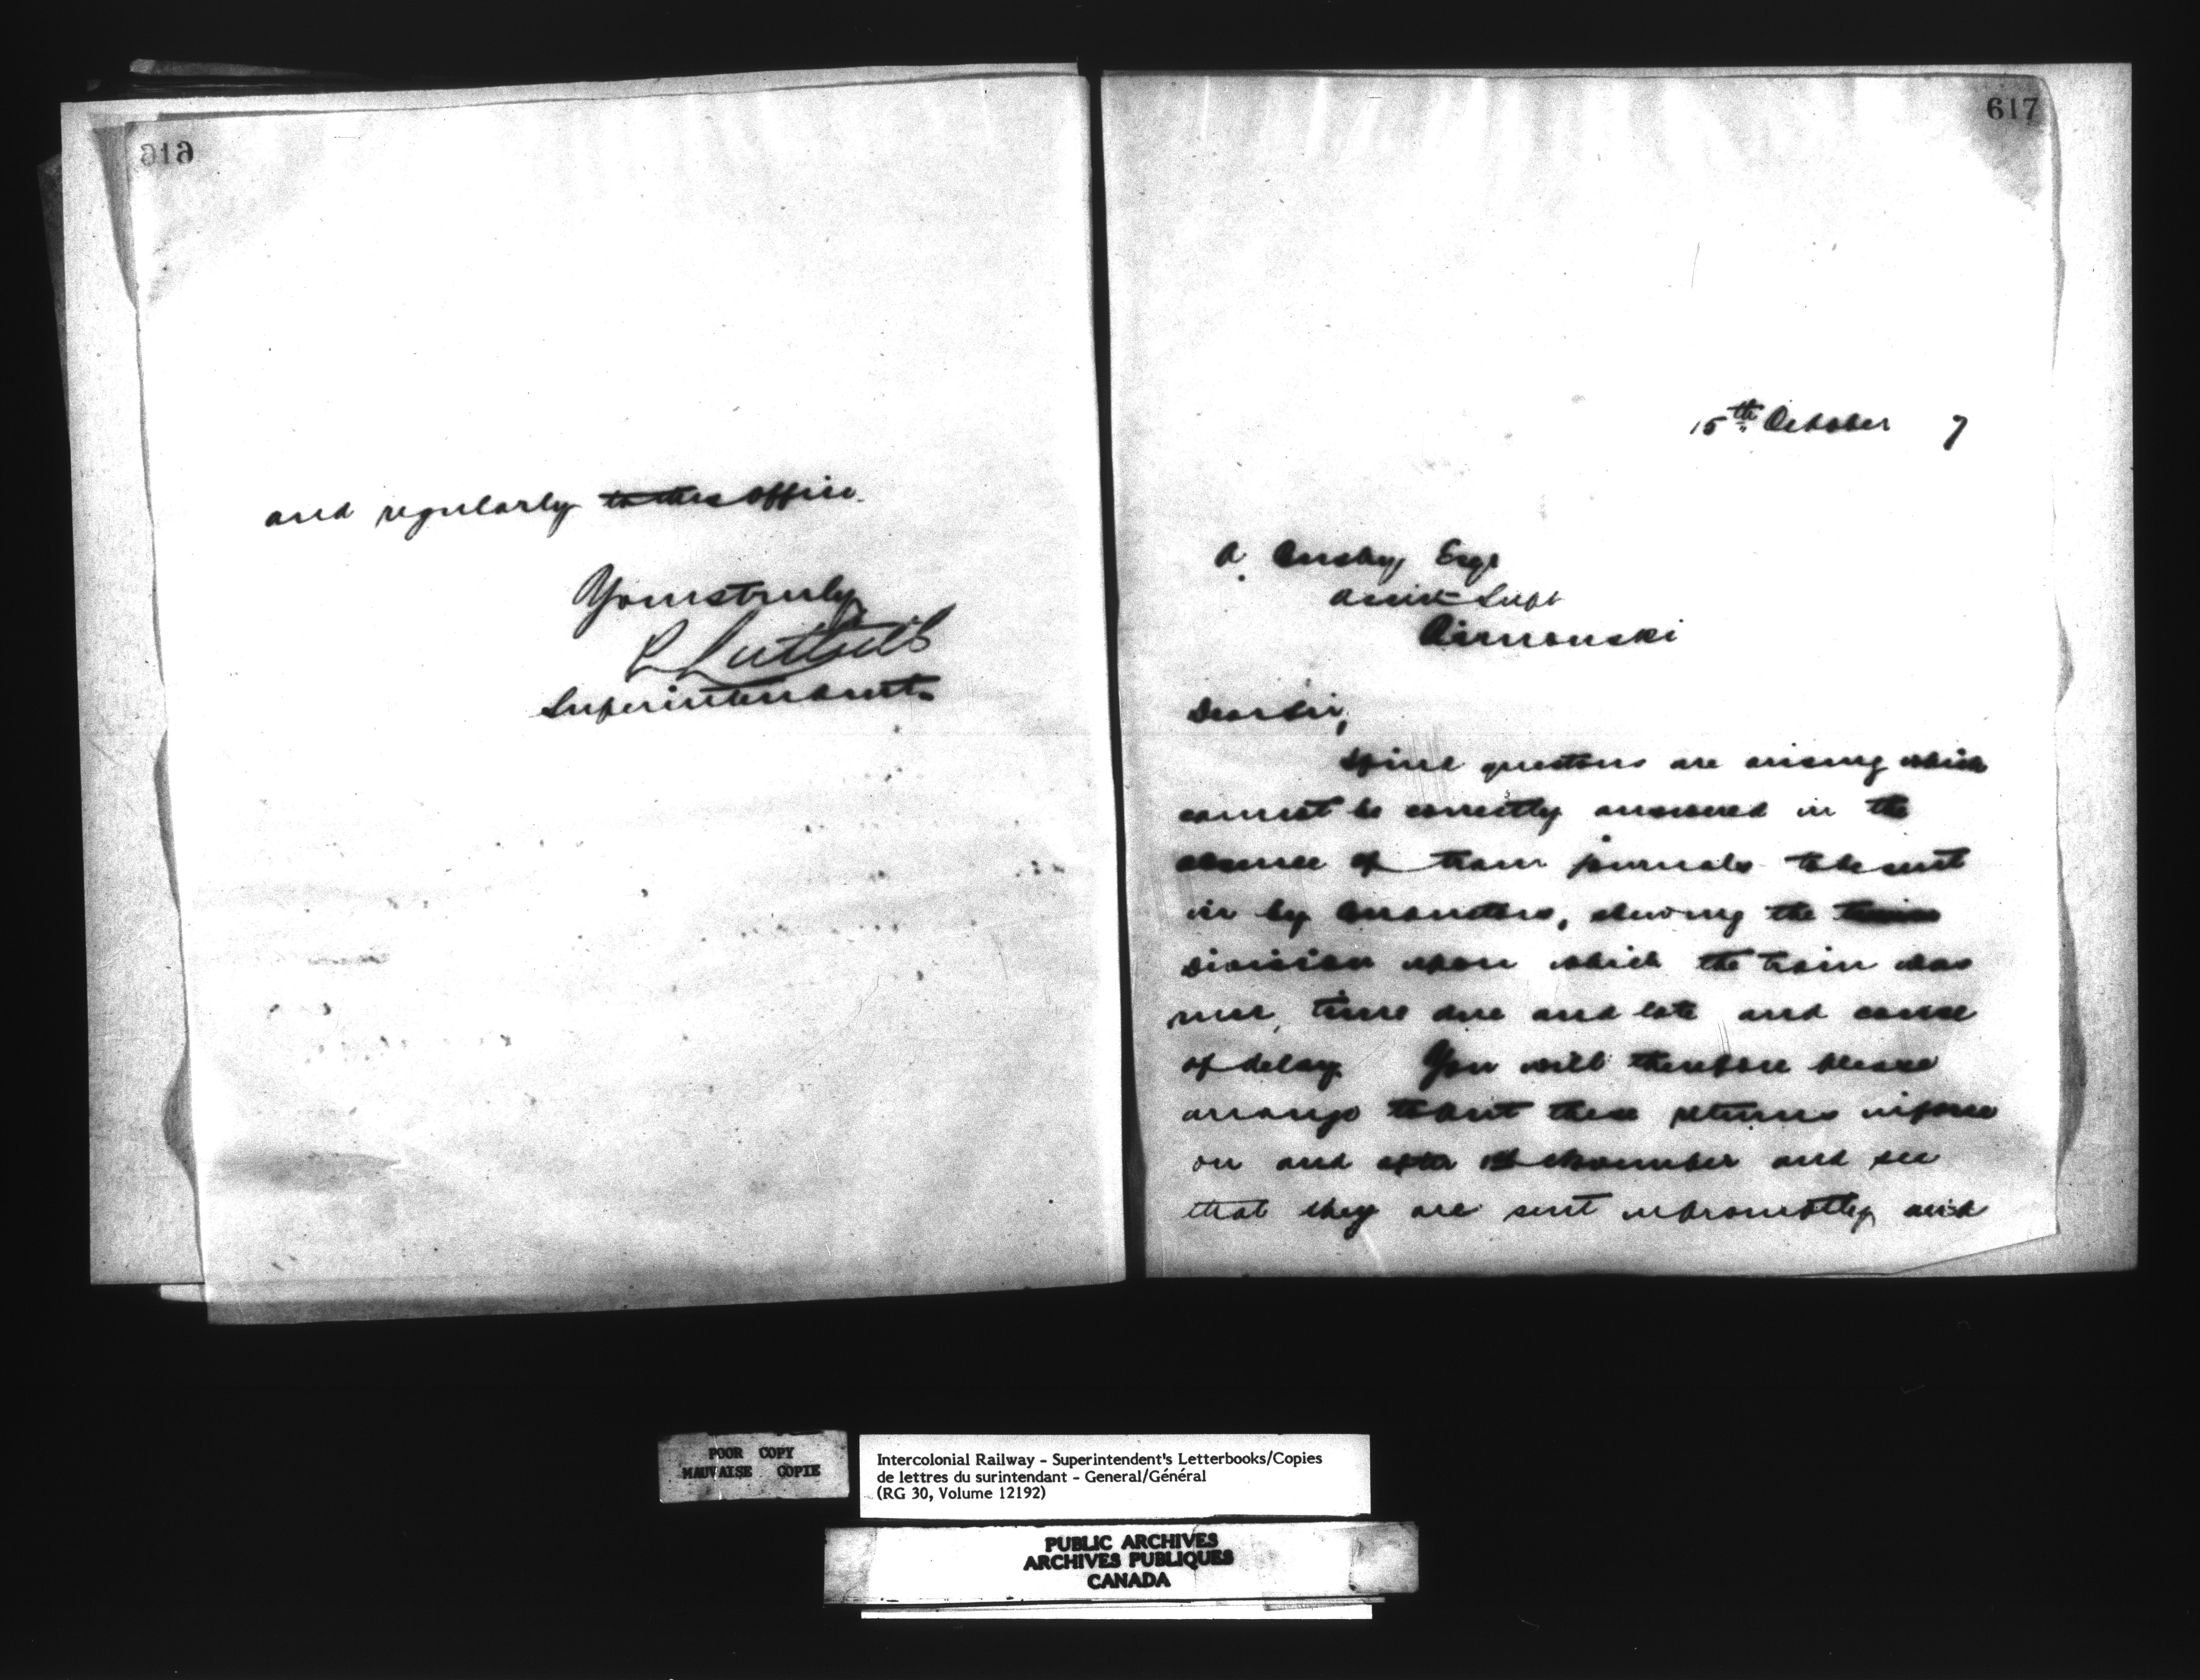 616
and regularly to this office.
Yours truly
P S Archibald
Superintendent.
617
15th October 7
A. Busby Esqr
Assist Supt
Rimouski
Dear Sir,
questions are arising which
cannot be correctly answered in the
absence of train journals to be sent
in by Conductors, showing the
Division upon which the train was
run, time due and late and cause
of delay. You will therefore please
arrange to put these returns in force
on and after 1st November and see
that they are sent in promptly and
POOR COPY
MAUVAISE COPIE
Intercolonial Railway - Superintendent's Letterbooks/Copies
de lettres du surintendant - General/Général
(RG 30, Volume 12192)
PUBLIC ARCHIVES
ARCHIVES PUBLIQUES
CANADA